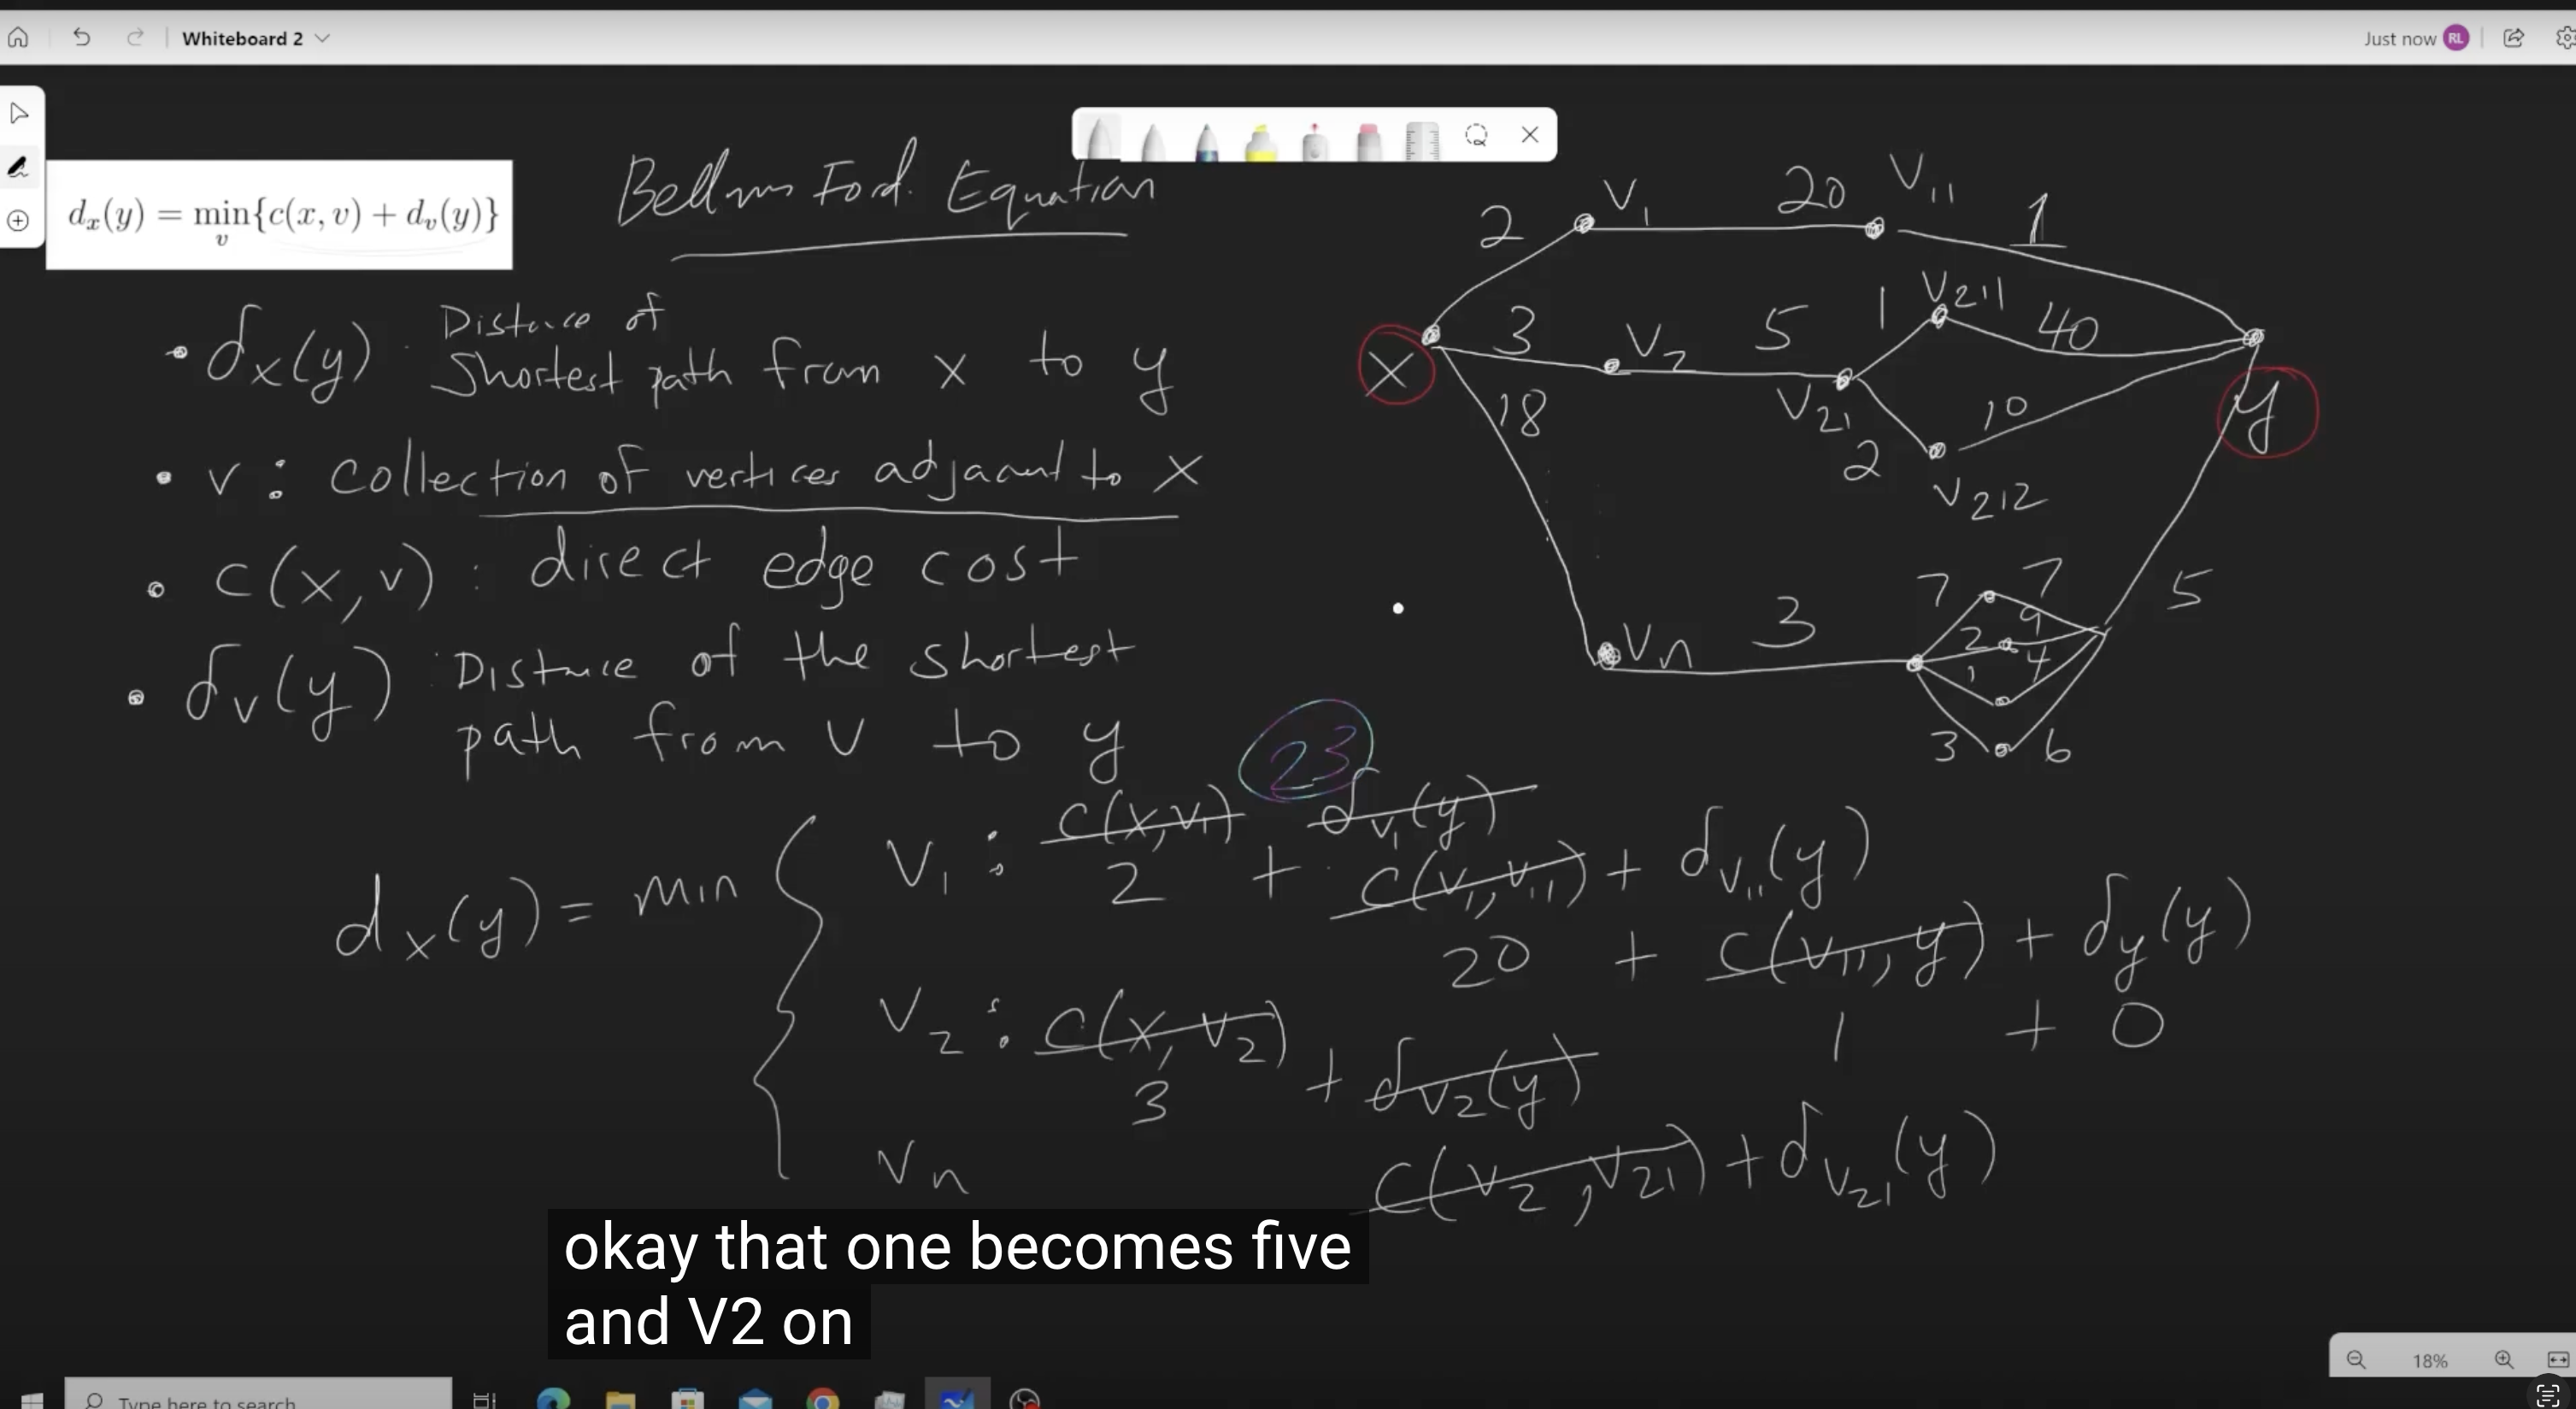 Whiteboard 2
Just now RL
d_x(y) = min_v{c(x, v) + d_v(y)}
Bellman Ford. Equation
• d_x(y) Distance of
Shortest path from x to y
• v : Collection of vertices adjacent to x
• c(x, v) : direct edge cost
• d_v(y) Distance of the shortest
path from v to y
2 V1 20 V11 1
X 3 V2 5 1 V211 40
18 V21 10 y
2 V212
Vn 3 7 7 5
2 9
1 4
3 6
23
d_x(y) = min
V1 : c(x,v1) d_v1(y)
2 + c(v1, v11) + d_v11(y)
20 + c(v11, y) + d_y(y)
1 + 0
V2 : c(x, v2) + d_v2(y)
3
c(v2, v21) + d_v21(y)
Vn
okay that one becomes five
and V2 on
18%
Type here to search